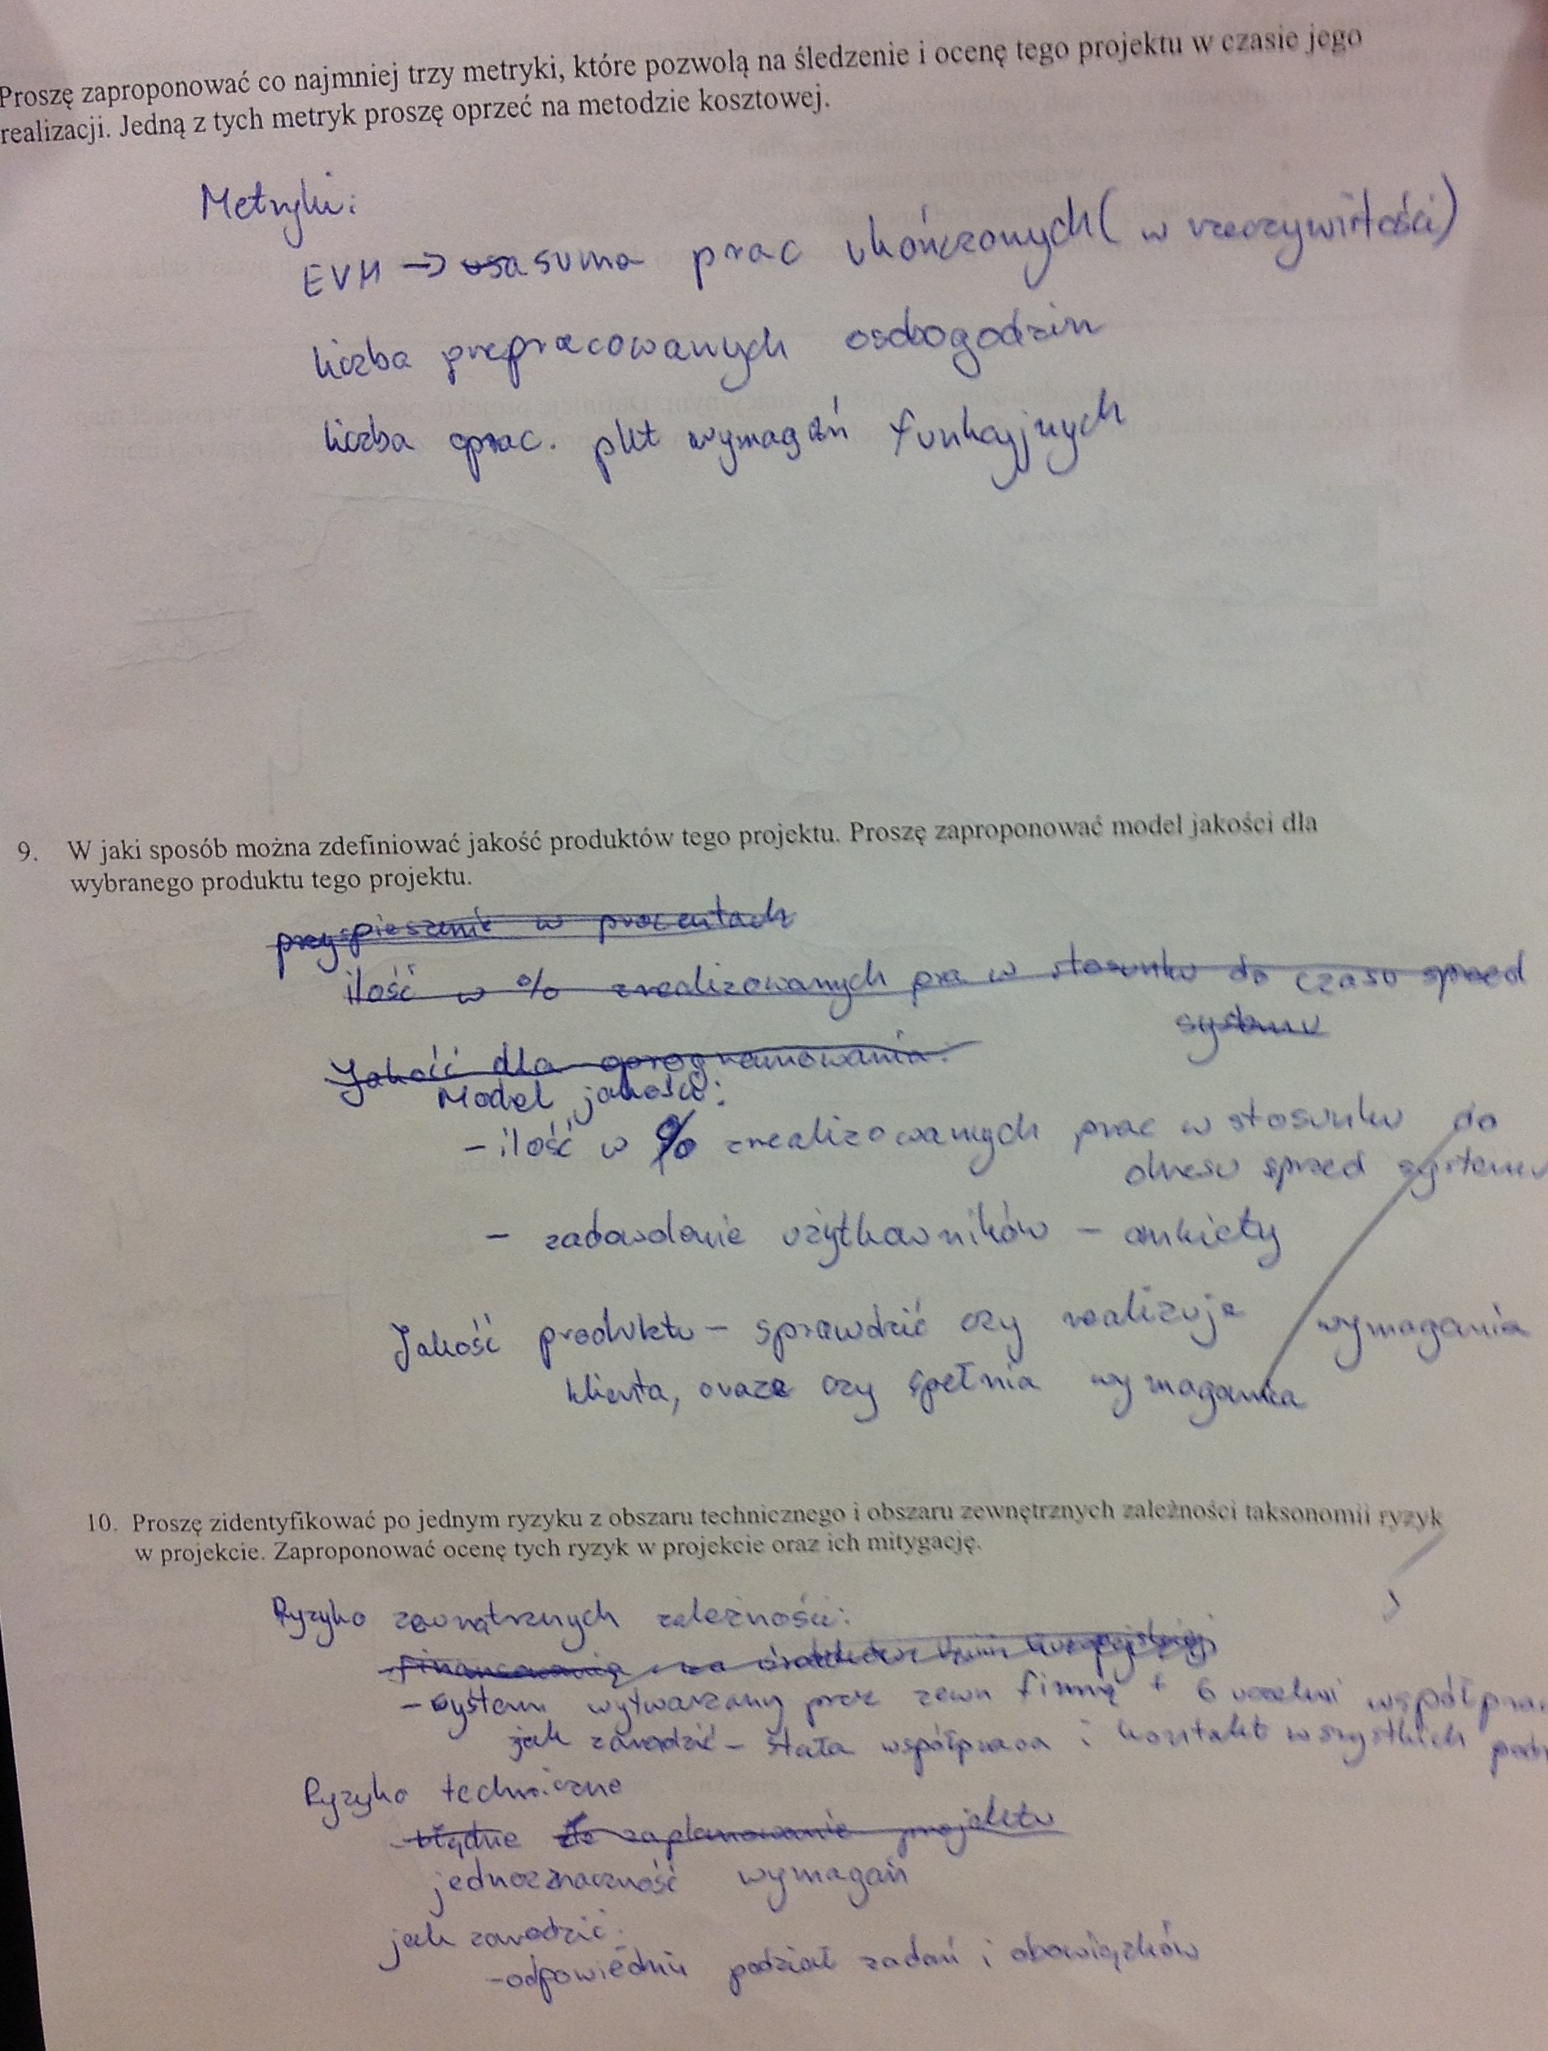 Proszę zaproponować co najmniej trzy metryki, które pozwolą na śledzenie i ocenę tego projektu w czasie jego
realizacji. Jedną z tych metryk proszę oprzeć na metodzie kosztowej.
Metryki:
EVM → suma prac ukończonych (w rzeczywistości)
liczba przepracowanych osobogodzin
liczba oprac. pkt wymagań funkcyjnych
9. W jaki sposób można zdefiniować jakość produktów tego projektu. Proszę zaproponować model jakości dla
wybranego produktu tego projektu.
przyspieszenie w procentach
ilość w % zrealizowanych w stosunku do czasu sprzed
systemu
Jakość dla oprogramowania:
Model jakości:
- ilość w % zrealizowanych prac w stosunku do
okresu sprzed systemu
- zadowolenie użytkowników - ankiety
Jakość produktu - sprawdzić czy realizuje wymagania
klienta, oraz czy spełnia wymagania
10. Proszę zidentyfikować po jednym ryzyku z obszaru technicznego i obszaru zewnętrznych zależności taksonomii ryzyk
w projekcie. Zaproponować ocenę tych ryzyk w projekcie oraz ich mitygację.
Ryzyko zewnątrznych zależności:
- system wytwarzany przez zewn firmę + 6 uczelni
jak zaradzić - stała współpraca i kontakt wszystkich
Ryzyko techniczne
- błędne zaplanowanie projektu
jednoznaczność wymagań
jak zaradzić:
- odpowiedni podział zadań i obowiązków